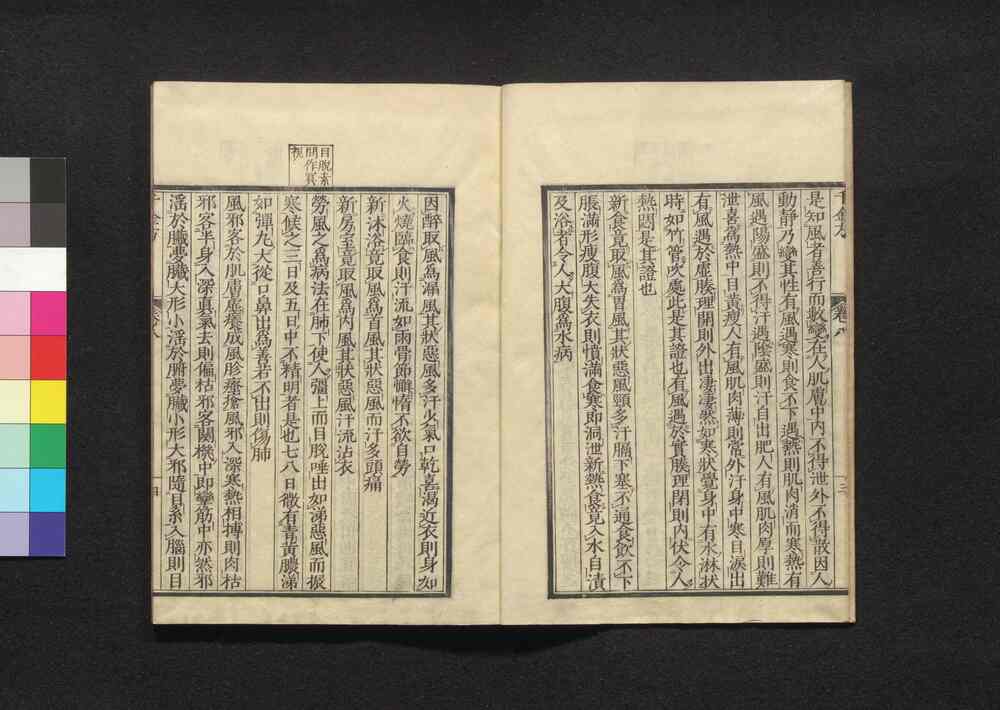 是知風者善行而數變在人肌膚中内不得泄外不得散因人
動靜乃變其性有風遇寒則食不下遇熱則肌肉消而寒熱有
風遇陽盛則不得汗遇陰盛則汗自出肥人有風肌肉厚則難
泄喜爲熱中目黄瘦人有風肌肉薄則常外汗身中寒目淚出
有風遇於虛腠理開則外出凄凄然如寒狀覺身中有水淋狀
時如竹管吹處此是其證也有風遇於實腠理閉則内伏令人
熱悶是其證也
新食竟取風爲胃風其狀惡風頸多汗膈下塞不通食飲不下
脹滿形瘦腹大失衣則憤滿食寒即洞泄新熱食竟入水自漬
及浴者令人大腹爲水病
因醉取風爲漏風其狀惡風多汗少氣口乾喜渴近衣則身如
火燒臨食則汗流如雨骨節懈惰不欲自勞
新沐浴竟取風爲首風其狀惡風而汗多頭痛
新房室竟取風爲内風其狀惡風汗流沾衣
目脫素
問作冥
視
勞風之爲病法在肺下使人彊上而目脫唾出如涕惡風而振
寒候之三日及五日中不精明者是也七八日微有青黄膿涕
如彈丸大從口鼻出爲善若不出則傷肺
風邪客於肌膚虛癢成風胗瘡瘙風邪入深寒熱相搏則肉枯
邪客半身入深真氣去則偏枯邪客關機中即攣筋中亦然邪
淫於臟夢臟大形小淫於腑夢臟小形大邪隨目系入腦則目